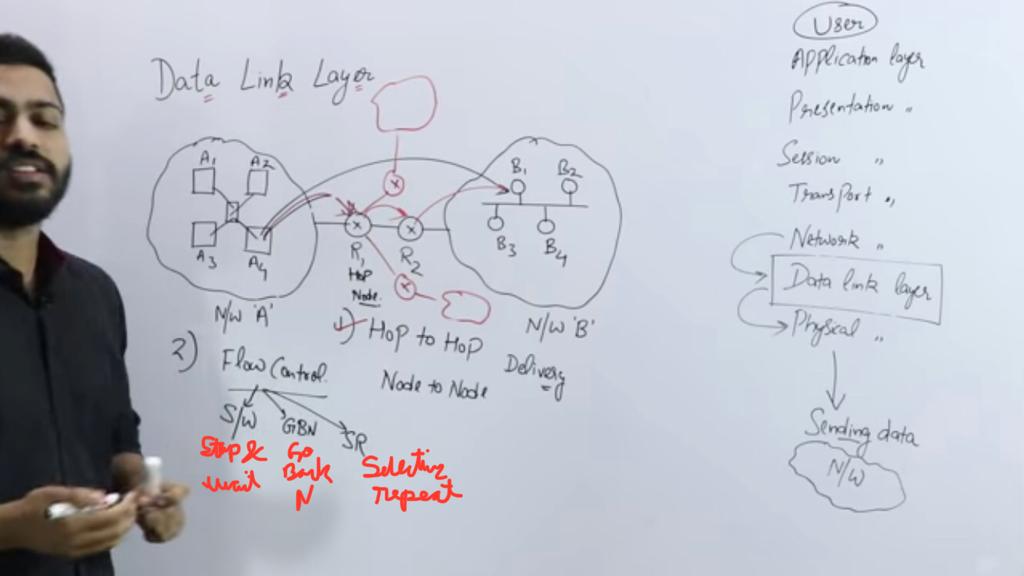 Data Link Layer
A1 A2
A3 A4
N/W 'A'
R1
HOP
Node
R2
B1 B2
B3 B4
N/W 'B'
1) HOP to HOP
Node to Node
Delivery
2) Flow Control
S/W GBN SR
Stop & wait
Go Back N
Selecting repeat
User
Application layer
Presentation "
Session "
Transport "
Network "
Data link layer
Physical "
Sending data
N/W